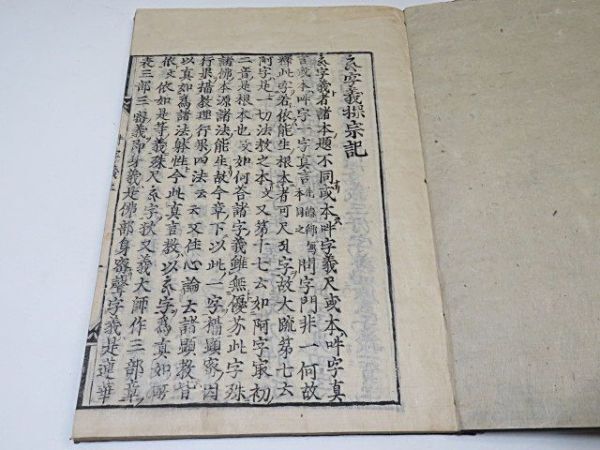 字義探宗記
字義者諸本題不同或本吽字義尺或本吽字真
言或本吽字一字真言 問字門非一何故
釋此字若依能生根本者可尺 字故大疏第七云
阿字是一切法教之本文又第十七云如阿字家初
二音是根本也文如何答諸字義雖無優劣此字殊
諸佛本源諸法能生故今章下以此一字楷顯密因
行果摂教理行果四法云云又住心論云諸顯教皆
以真如為諸法躰性今此真言教以 字為真如所
依文依如是等義殊尺 字欤又義大師作三部章
表三部三密義即身義是佛部身密聲字義是蓮華